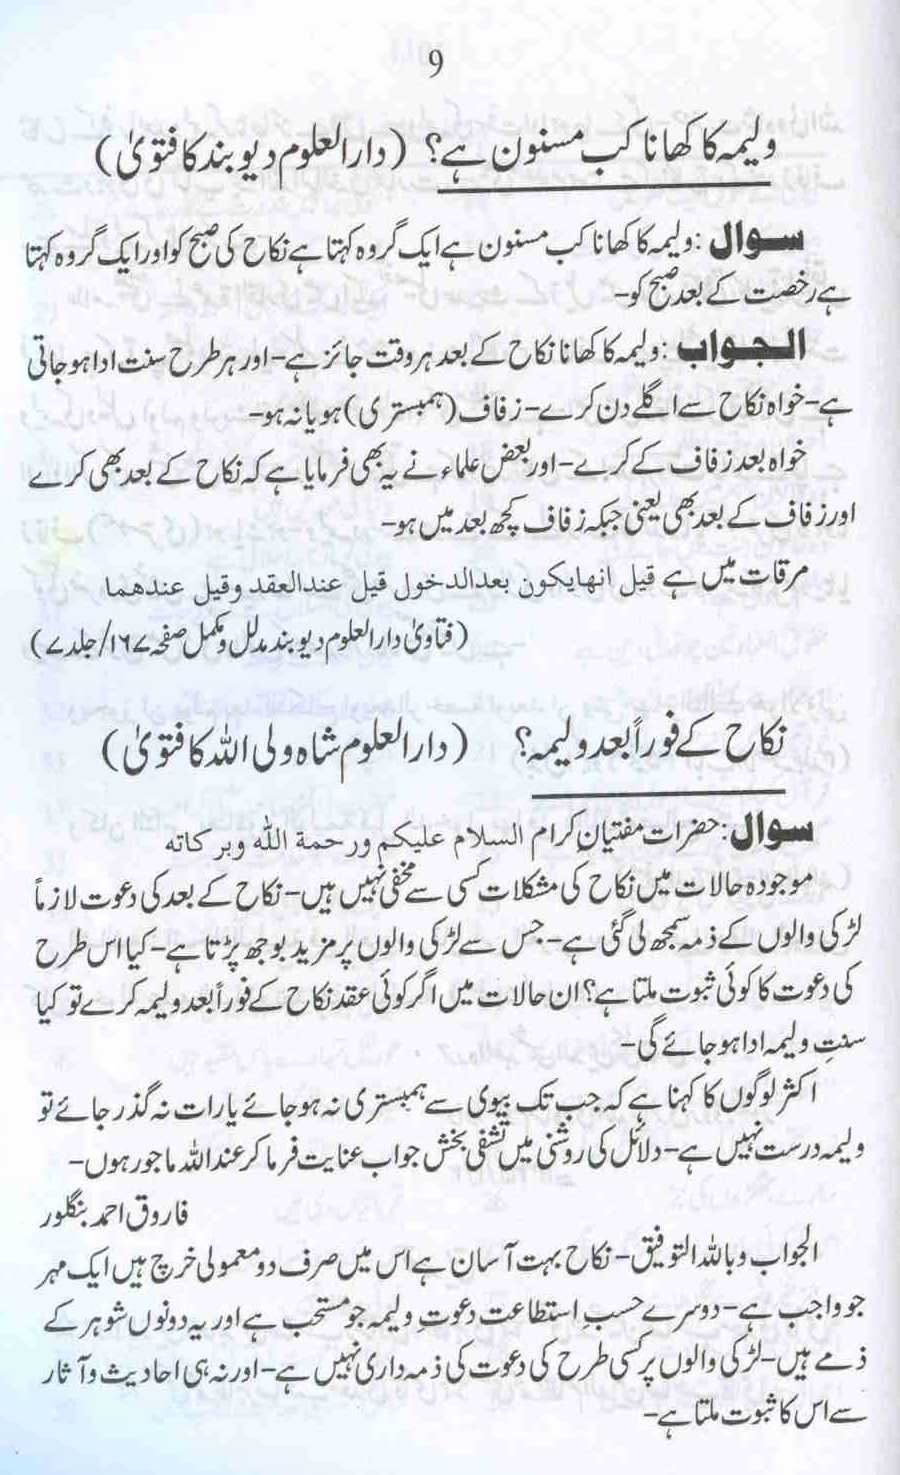 9
ولیمہ کا کھانا کب مسنون ہے؟ (دارالعلوم دیوبند کا فتویٰ)
سوال: ولیمہ کا کھانا کب مسنون ہے ایک گروہ کہتا ہے نکاح کی صبح کو اور ایک گروہ کہتا
ہے رخصت کے بعد صبح کو۔
الجواب: ولیمہ کا کھانا نکاح کے بعد ہر وقت جائز ہے۔ اور ہر طرح سنت ادا ہو جاتی
ہے۔ خواہ نکاح سے اگلے دن کرے۔ زفاف (ہمبستری) ہو یا نہ ہو۔
خواہ بعد زفاف کے کرے۔ اور بعض علماء نے یہ بھی فرمایا ہے کہ نکاح کے بعد بھی کرے
اور زفاف کے بعد بھی یعنی جبکہ زفاف کچھ بعد میں ہو۔
مرقات میں ہے قیل انھا یکون بعد الدخول قیل عند العقد وقیل عندھما
(فتاویٰ دارالعلوم دیوبند مدلل و مکمل صفحہ ۱۶۷/جلد ۷)
نکاح کے فوراً بعد ولیمہ؟ (دارالعلوم شاہ ولی اللہ کا فتویٰ)
سوال: حضرات مفتیانِ کرام السلام علیکم ورحمۃ اللہ وبرکاتہ
موجودہ حالات میں نکاح کی مشکلات کسی سے مخفی نہیں ہیں۔ نکاح کے بعد کی دعوت لازماً
لڑکی والوں کے ذمہ سمجھ لی گئی ہے۔ جس سے لڑکی والوں پر مزید بوجھ پڑتا ہے۔ کیا اس طرح
کی دعوت کا کوئی ثبوت ملتا ہے؟ ان حالات میں اگر کوئی عقد نکاح کے فوراً بعد ولیمہ کرے تو کیا
سنتِ ولیمہ ادا ہو جائے گی۔
اکثر لوگوں کا کہنا ہے کہ جب تک بیوی سے ہمبستری نہ ہو جائے یا رات نہ گذر جائے تو
ولیمہ درست نہیں ہے۔ دلائل کی روشنی میں تشفی بخش جواب عنایت فرما کر عند اللہ ماجور ہوں۔
فاروق احمد بنگلور
الجواب وباللہ التوفیق۔ نکاح بہت آسان ہے اس میں صرف دو معمولی خرچ ہیں ایک مہر
جو واجب ہے۔ دوسرے حسبِ استطاعت دعوتِ ولیمہ جو مستحب ہے اور یہ دونوں شوہر کے
ذمے ہیں۔ لڑکی والوں پر کسی طرح کی دعوت کی ذمہ داری نہیں ہے۔ اور نہ ہی احادیث و آثار
سے اس کا ثبوت ملتا ہے۔